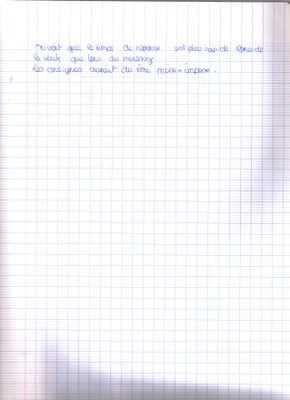 On voit que le temps de réponse est plus rapide lors de
la vérité que lors du mensonge
Les consignes aurait du être mieux imposé.